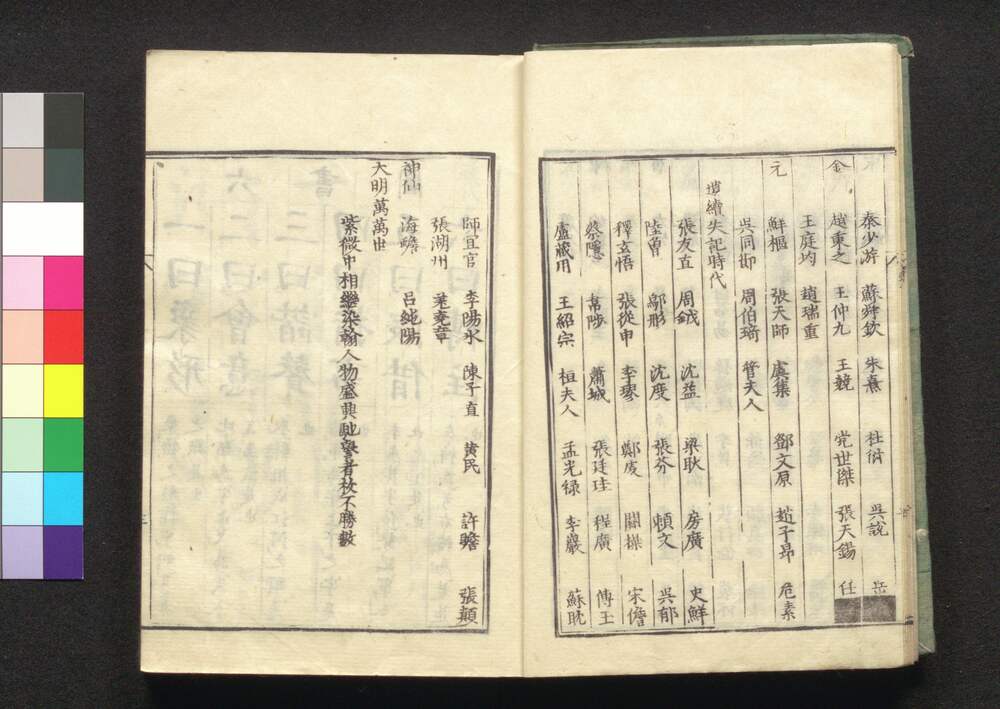 秦少游 蘇舜欽 朱熹 杜衍 吳說 岳
金 趙秉之 王仲九 王競 党世傑 張天錫 任
王庭均 趙瑞重
元 鮮樞 張天師 虞集 鄧文原 趙子昂 危素
吳同邯 周伯琦 管夫人
失記時代
張友直 周鉞 沈益 梁耿 房廣 史鮮
陸曾 鄔彤 沈度 張芬 頼文 吳郁
釋玄悟 張從申 李璆 鄭虔 關操 宋儋
蔡隱 常陟 蕭城 張廷珪 程廣 傅玉
盧藏用 王紹宗 桓夫人 孟光祿 李巖 蘇眈
師宜官 李陽氷 陳子直 黄民 許瞻 張顛
張潮州 章
神仙 海蟾 呂純陽
大明萬萬世
紫微中相繼染翰人物盛興馳譽者枚不勝數